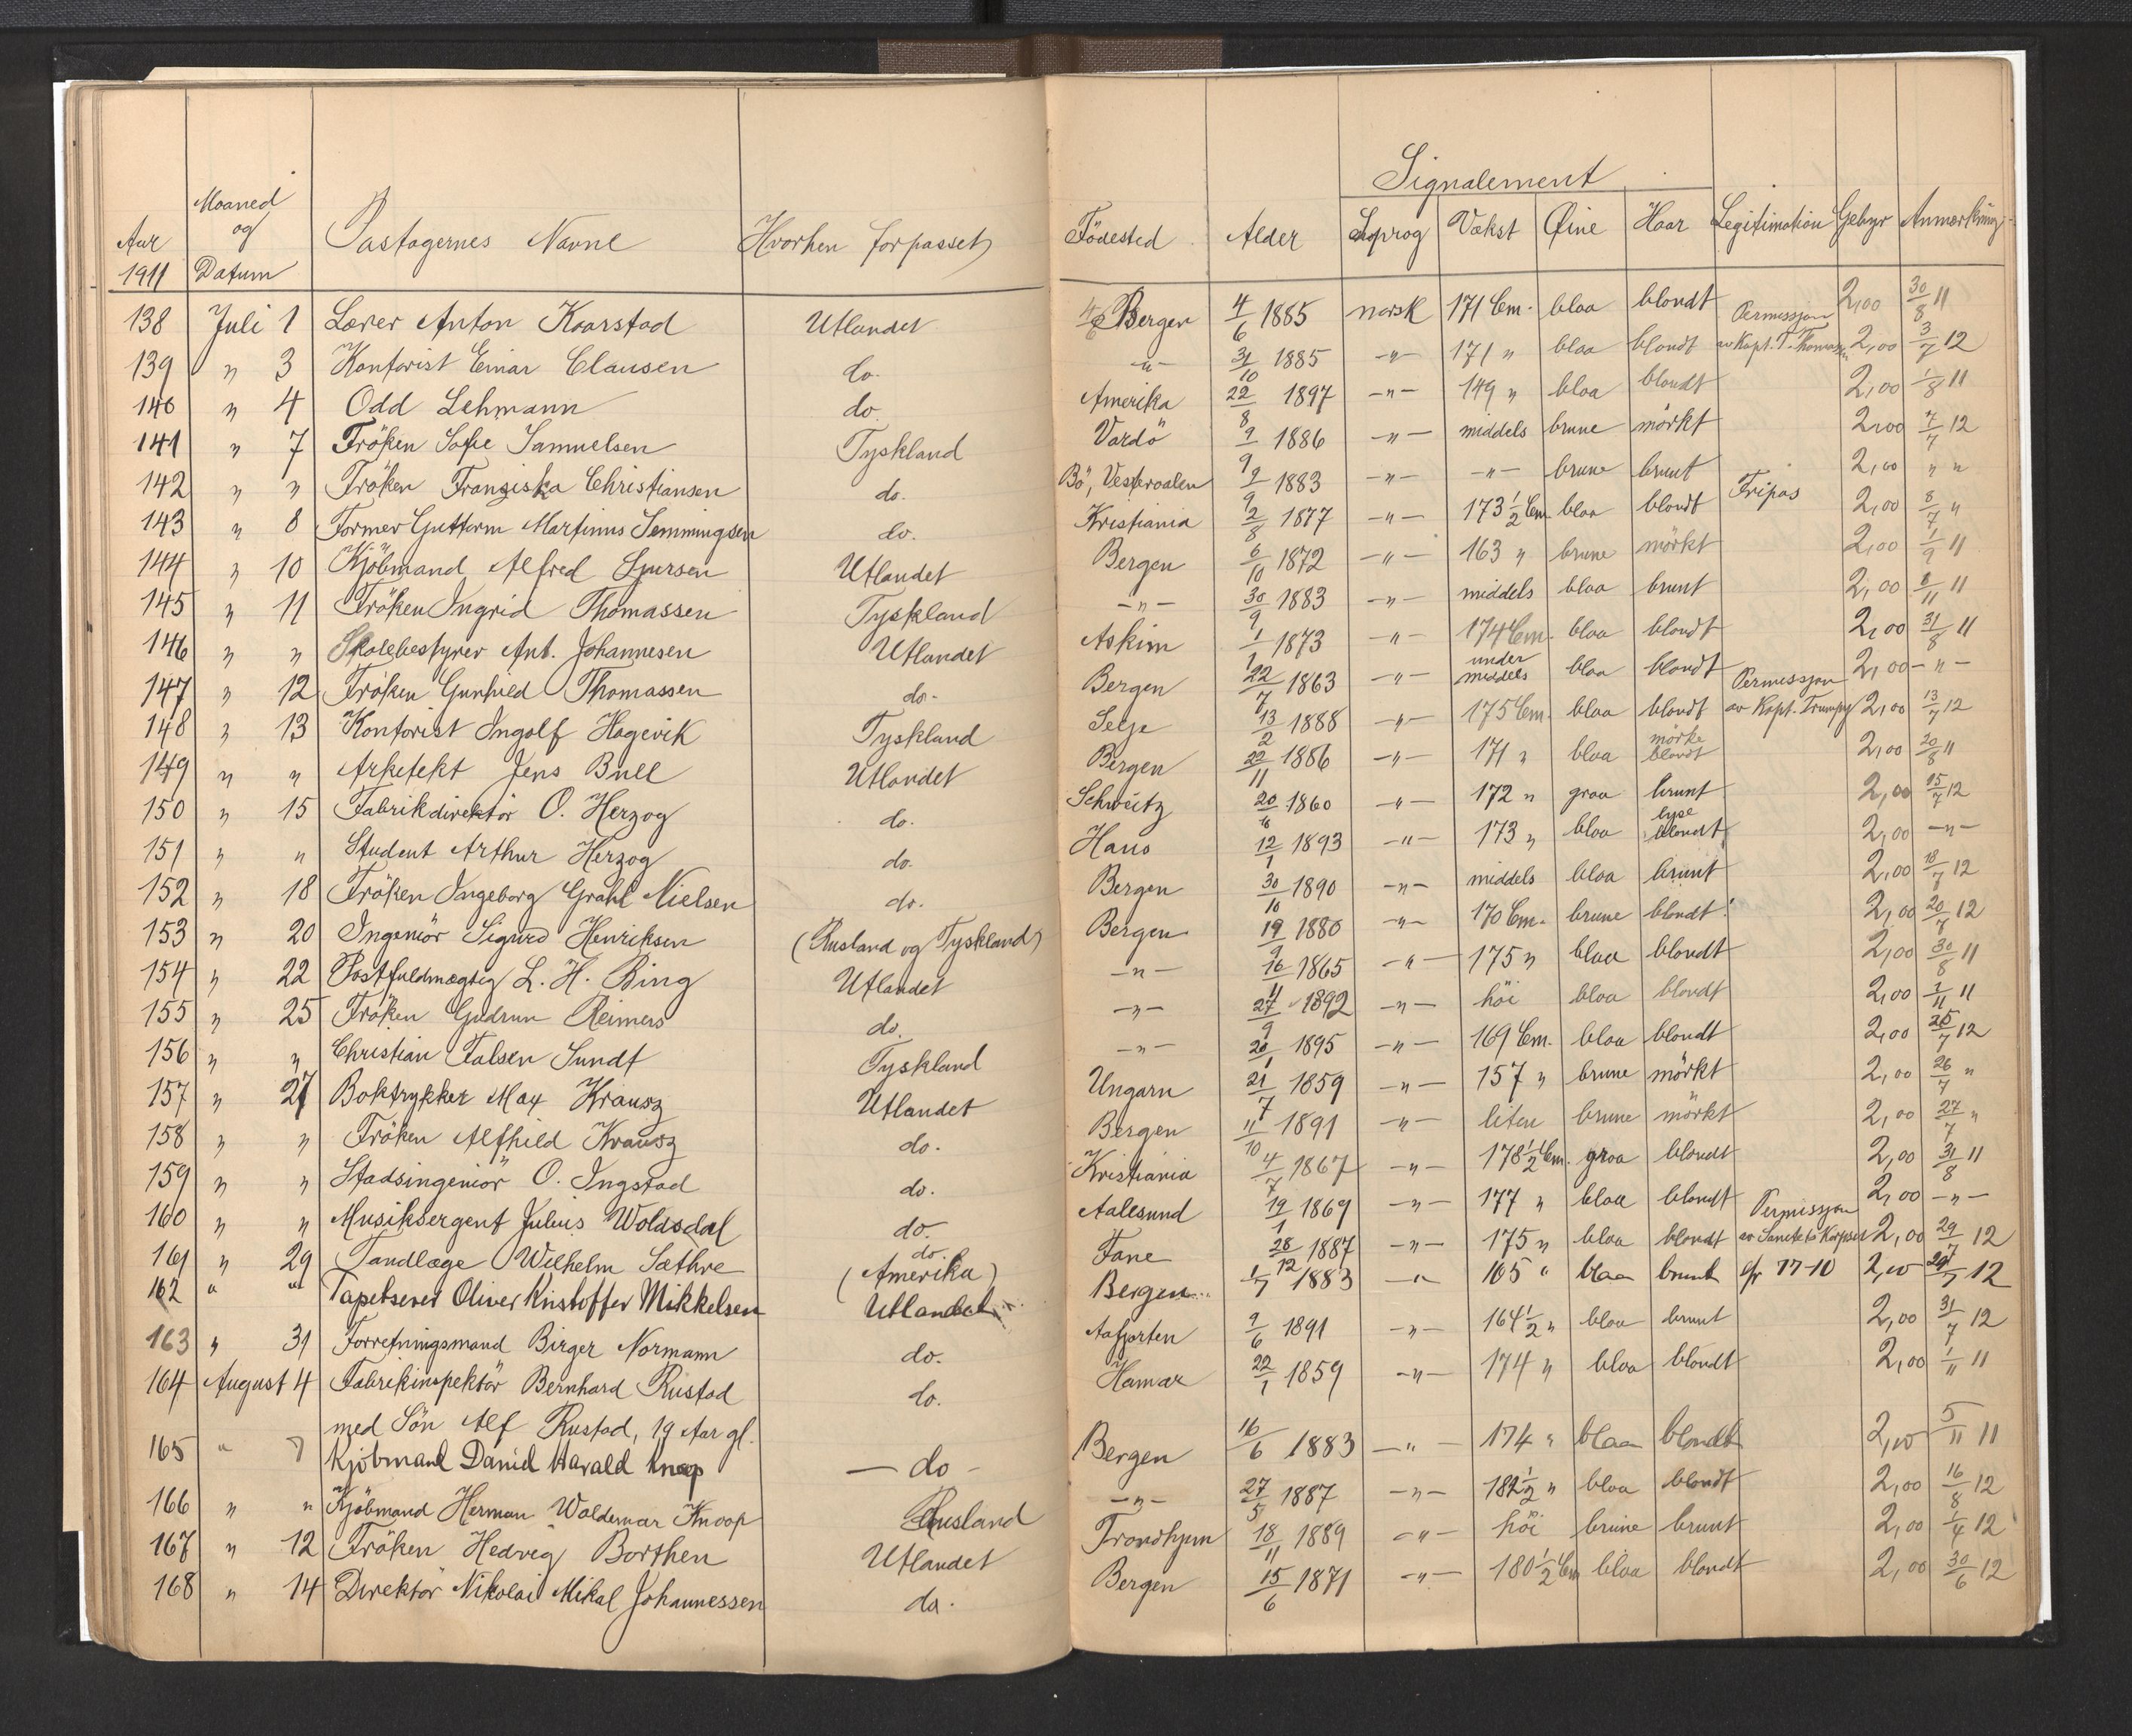 Signalement
Aar 1911 Maaned og Datum Pastagernes Navne Hvorhen forpasset Födested Alder Sprog Vækst Øine Haar Legitimation Gebyr Anmærkning
138 Juli 1 Lærer Anton Kaarstad Utlandet Bergen 4/6 1885 norsk 171 Cm. blaa blondt Permission 2,00 30/8 11
139 " 3 Kontorist Einar Clausen do. -"- 31/10 1885 -"- 171 " blaa blondt av Kapt. T. Thomassen 2,00 3/7 12
140 " 4 Odd Lehmann do. Amerika 22/8 1897 -"- 149 " blaa blondt 2,00 1/8 11
141 " 7 Fröken Sofie Samuelsen Tyskland Vardö 9/9 1886 -"- middels brune mörkt 2,00 7/7 12
142 " " Fröken Franziska Christiansen do. Bö, Vesteraalen 9/9 1883 -"- -"- brune brunt 2,00 " "
143 " 8 Former Guttorm Martinus Semmingsen do. Kristiania 2/8 1877 -"- 173 1/2 Cm blaa blondt Fripas 2,00 8/7 "
144 " 10 Kjöbmand Alfred Sjursen Utlandet Bergen 6/10 1872 -"- 163 " brune mörkt 2,00 1/9 11
145 " 11 Fröken Ingrid Thomassen Tyskland -"- 30/9 1883 -"- middels blaa brunt 2,00 8/11 11
146 " " Skolebestyrer Ant. Johannesen Utlandet Askim 1/1 1873 -"- 174 Cm. blaa blondt 2,00 31/8 11
147 " 12 Fröken Gunhild Thomassen do. Bergen 22/7 1863 -"- under middels blaa blondt Permission 2,00 -"-
148 " 13 Kontorist Ingolf Hagevik Tyskland Selje 13/2 1888 -"- 175 Cm. blaa blondt av Kapt. Trumpy 2,00 13/7 12
149 " " Arkitekt Jens Bull Utlandet Bergen 22/11 1886 -"- 171 " blaa mörke blondt 2,00 20/8 11
150 " 15 Fabrikdirektör O. Herzog do. Schweitz 20/6 1860 -"- 172 " graa brunt 2,00 15/7 12
151 " " Student Arthur Herzog do. Haus 12/1 1893 -"- 173 " blaa lyse blondt 2,00 -"-
152 " 18 Fröken Ingeborg Grahl Nielsen do. Bergen 30/10 1890 -"- middels blaa brunt 2,00 18/7 12
153 " 20 Ingeniör Sigurd Henriksen (Rusland og Tyskland) Bergen 19/9 1880 -"- 170 Cm. brune blondt 2,00 20/7 12
154 " 22 Postfuldmægtig L. H. Bing Utlandet -"- 16/11 1865 -"- 175 " blaa blondt 2,00 30/8 11
155 " 25 Fröken Gudrun Reimers do. -"- 27/9 1892 -"- höi blaa blondt 2,00 2/11 11
156 " " Christian Falsen Sundt Tyskland -"- 20/1 1895 -"- 169 Cm. blaa blondt 2,00 25/7 12
157 " 27 Boktrykker Max Krausz Utlandet Ungarn 21/7 1859 -"- 157 " brune mörkt 2,00 26/7 "
158 " " Fröken Alfhild Krausz do. Bergen 11/10 1891 -"- liten brune mörkt 2,00 27/7 "
159 " " Stadsingeniör O. Ingstad do. Kristiania 4/7 1867 -"- 178 1/2 Cm. graa blondt 2,00 31/8 11
160 " " Musiksergent Julius Woldsdal do. Aalesund 19/1 1869 -"- 177 " blaa blondt Permission 2,00 -"-
161 " 29 Tandlæge Wilhelm Sæthre do. (Amerika) Fane 28/12 1887 -"- 175 " blaa blondt av Sanitets Korpset 2,00 29/7 12
162 " " Tapetserer Oliver Kristoffer Mikkelsen Utlandet Bergen 1/7 1883 -"- 165 " blaa brunt cfr 77-10 2,00 29/7 12
163 " 31 Forretningsmand Birger Normann do. Aafjorten 9/6 1891 -"- 164 1/2 " blaa brunt 2,00 31/7 12
164 August 4 Fabrikinspektör Bernhard Rustad do. Hamar 22/1 1859 -"- 174 " blaa blondt 2,00 1/11 11
med Sön Alf Rustad, 19 Aar gl.
165 " 7 Kjöbmand Daniel Harald Knoop - do - Bergen 16/6 1883 -"- 174 " blaa blondt 2,00 5/11 11
166 " " Kjöbmand Herman Waldemar Knoop Rusland -"- 27/5 1887 -"- 182 1/2 " blaa blondt 2,00 16/8 12
167 " 12 Fröken Hedvig Borthen Utlandet Trondhjem 18/11 1889 -"- höi brune brunt 2,00 1/4 12
168 " 14 Direktör Nikolai Mikal Johannessen do. Bergen 15/6 1871 -"- 180 1/2 Cm blaa blondt 2,00 30/6 12